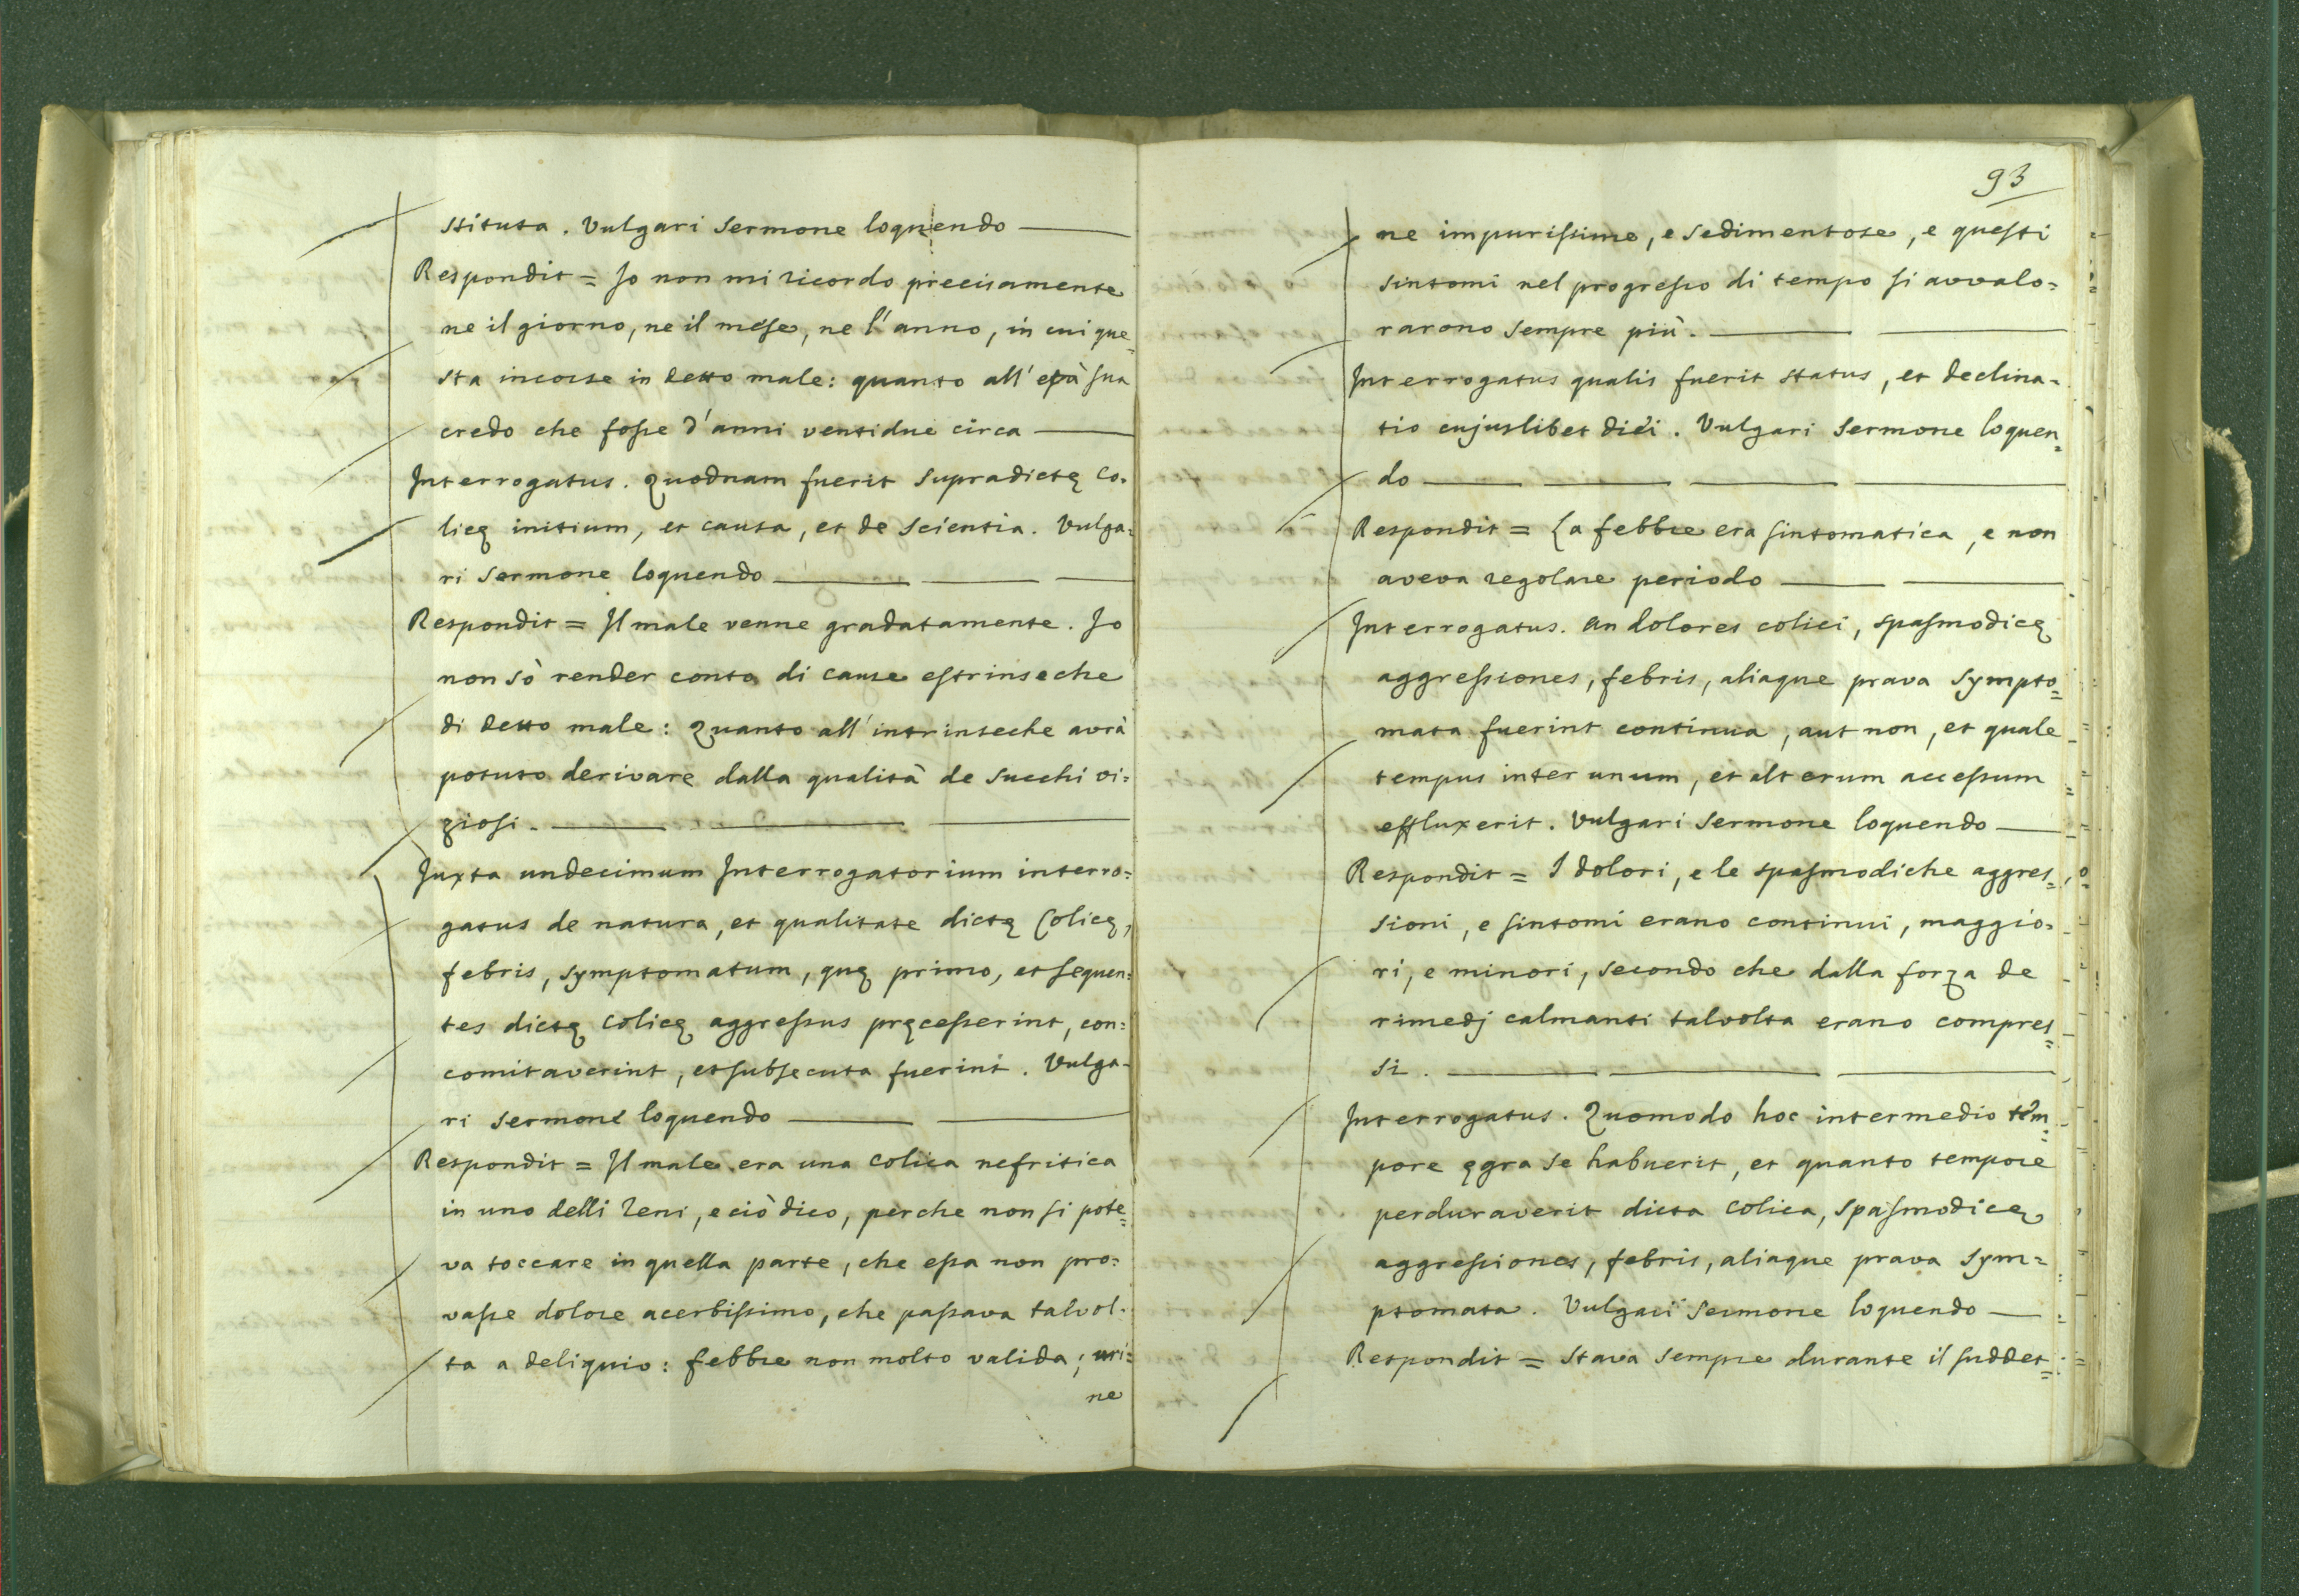 stituta. Vulgari Sermone loquendo
Respondit = Io non mi ricordo precisamente
ne il giorno, ne il mese, ne l'anno, in cui que=
sta incorse in detto male: quanto all'età sua
credo che fosse d'anni ventidue circa
Interrogatus. Quodnam fuerit supradictę Co=
licę initium, et causa, et de scientia. Vulga=
ri Sermone loquendo
Respondit = Il male venne gradatamente. Io
non sò render conto di cause estrinseche
di detto male: Quanto all'intrinseche avrà
potuto derivare dalla qualità de succhi vi=
ziosi.
Juxta undecimum Interrogatorium interro=
gatus de natura, et qualitate dictę Colicę,
febris, symptomatum, quę primo, et sequen=
tes dictę Colicę aggressus pręcesserint, con=
comitaverint, et subsecuta fuerint. Vulga=
ri sermone loquendo
Respondit = Il male era una colica nefritica
in uno delli reni, e ciò dico, perche non si pote=
va toccare in quella parte, che essa non pro=
vasse dolore acerbissimo, che passava talvol=
ta a deliquio: febbre non molto valida; uri=
ne
93
ne impurissime, e sedimentose, e questi
sintomi nel progresso di tempo si avvalo=
rarono sempre più.
Interrogatus qualis fuerit status, et declina=
tio cujuslibet diei. Vulgari Sermone loquen=
do
Respondit = La febbre era sintomatica, e non
aveva regolare periodo
Interrogatus. an dolores colici, spasmodicę
aggressiones, febris, aliaque prava sympto=
mata fuerint continua, aut non, et quale
tempus inter unum, et alterum accessum
effluxerit. Vulgari Sermone loquendo
Respondit = I dolori, e le spasmodiche aggres=
sioni, e sintomi erano continui, maggio=
ri, e minori, secondo che dalla forza de
rimedj calmanti talvolta erano compres=
si.
Interrogatus. Quomodo hoc intermedio tem=
pore ęgra se habuerit, et quanto tempore
perduraverit dicta colica, spasmodicę
aggressiones, febris, aliaque prava sym=
ptomata. Vulgari Sermone loquendo
Respondit = Stava sempre durante il suddet=